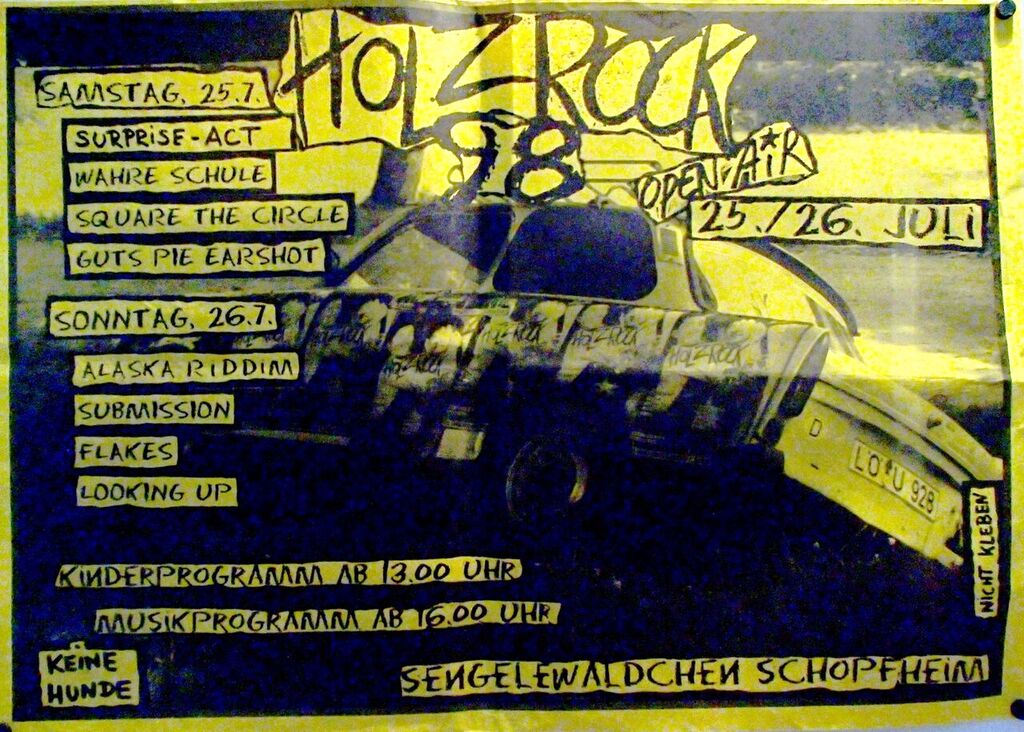 HOLZROCK
98
OPEN-AIR
25./26. JULI
SAMSTAG, 25.7.
SURPRISE-ACT
WAHRE SCHULE
SQUARE THE CIRCLE
GUTS PIE EARSHOT
SONNTAG, 26.7.
ALASKA RIDDIM
SUBMISSION
FLAKES
LOOKING UP
HOLZROCK
HOLZROCK
HOLZROCK
HOLZROCK
D
LÖ U 928
NICHT KLEBEN
KINDERPROGRAMM AB 13.00 UHR
MUSIKPROGRAMM AB 16.00 UHR
KEINE
HUNDE
SENGELEWÄLDCHEN SCHOPFHEIM